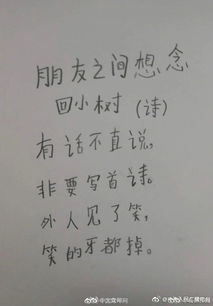 朋友之间想念
回小树(诗)
有话不直说,
非要写首诗。
外人见了笑,
笑的牙都掉。